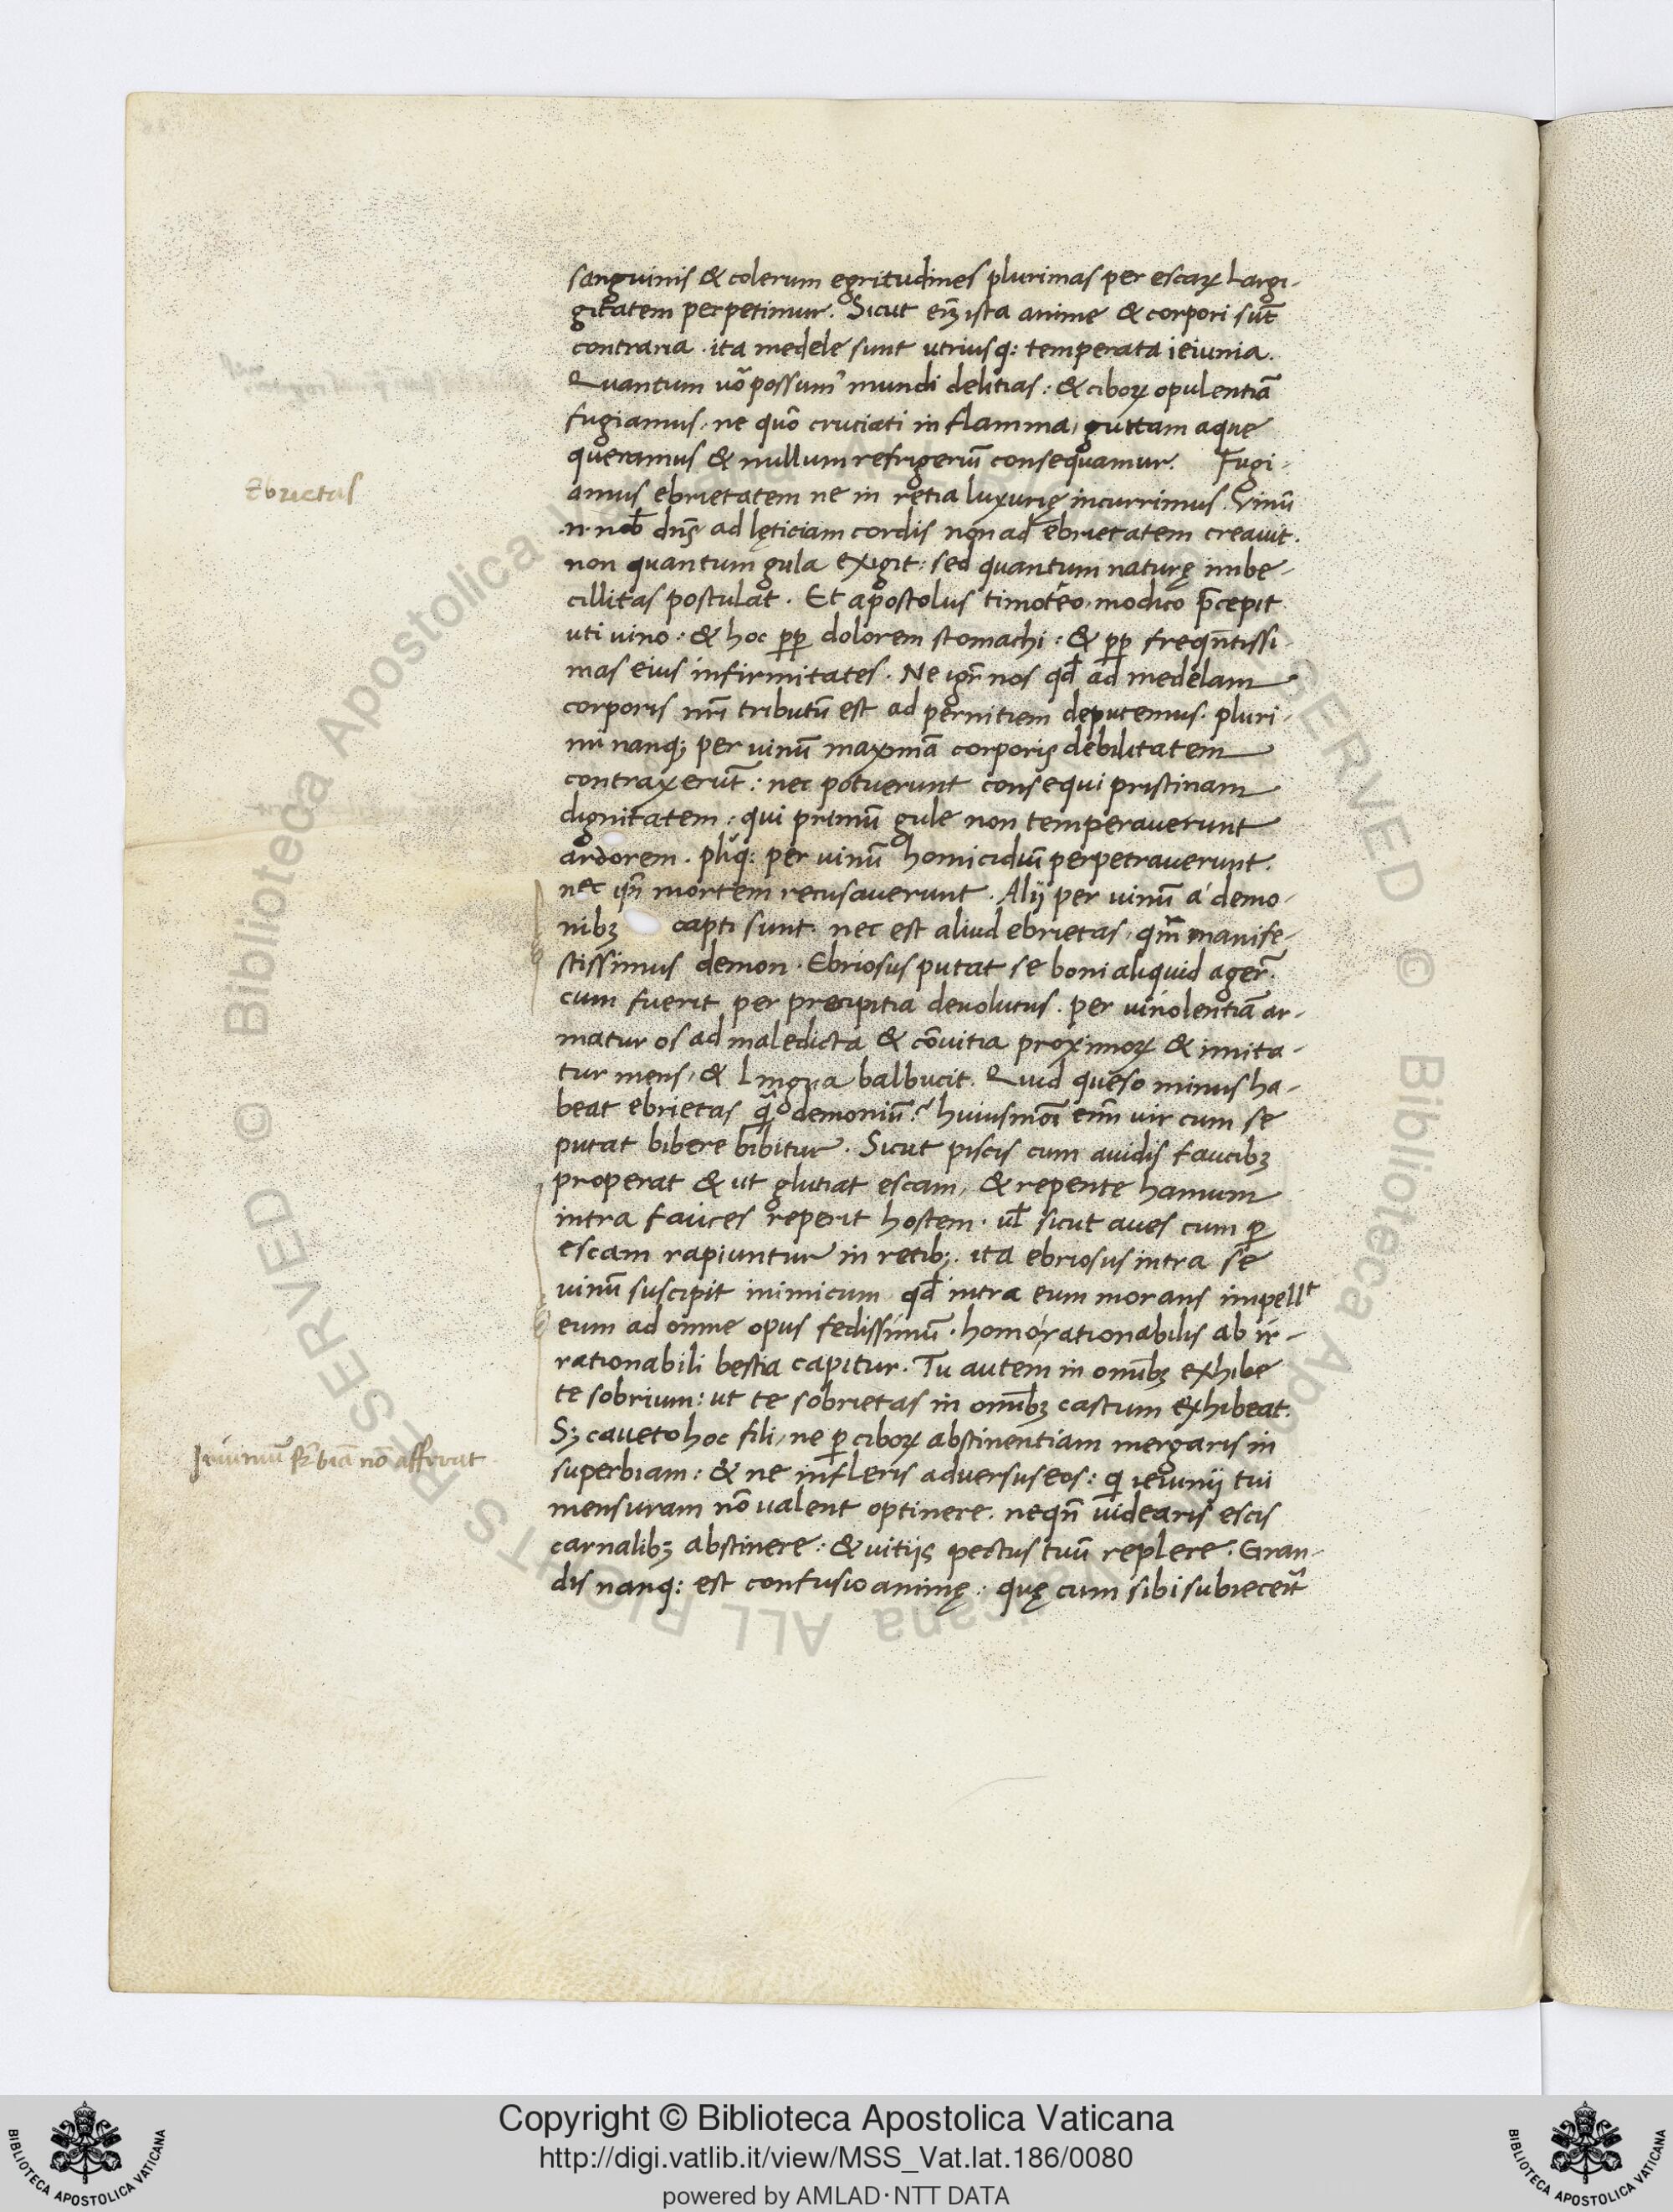 sanguinis & colerum egritudines plurimas per escaꝝ largi-
gitatem perpetimur. Sicut eñꝫ ista anime & corpori sūt
contraria . ita medele sunt utriusq: temperata ieiunia.
Quantum uõ possum᾿ mundi delitias : & ciboꝝ opulentiã
fugiamus, ne quõ cruciati in flamma, guttam aque
queramus & nullum refrigeriũ consequamur. Fugi-
Ebrietas
amus ebrietatem ne in retia luxurię incurrimus. Vinũ
.n. nob̄ dñs ad lęticiam cordis non ad ebrietatem creauit.
non quantum gula exigit: sed quantum naturę imbe-
cillitas postulat . Et apostolus timoteo, modico p̄cepit
uti vino : & hoc ꝓꝑ dolorem stomachi : & ꝓꝑ freqñtissi-
mas eius infirmitates . Ne igr̄ nos qd̄ ad medelam
corporis nr̄i tributũ est ad pernitiem deputemus. pluri-
mi nanqꝫ per uinũ maximã corporis debilitatem
contraxerũt : nec potuerunt consequi pristinam
dignitatem : qui primũ gule non temperauerunt
ardorem . pliq: per uinũ homicidiũ perpetrauerunt.
nec mortem recusauerunt . Alij per uinũ á demo-
nibꝫ capti sunt. nec est aliud ebrietas, qm̃ manife-
stissimus demon . Ebriosus putat se boni aliquid ager̃.
cum fuerit per precipitia deuolutus . per uinolentiã ar-
matur os ad maledicta & cõuitia proximoꝝ & imita-
tur mens, & Lingua balbucit. Quid queso minus ha-
beat ebrietas q̃ demoniũ? huiusmõi eñm uir cum se
putat bibere bibitur . Sicut piscis cum auidis faucibꝫ
properat & ut glutiat escam, & repente hamum
intra fauces reperit hostem . ul̄ sicut aues cum ꝑ
escam rapiuntur in retibꝫ. ita ebriosus intra se
uinũ suscipit inimicum qd̄ intra eum morans impellᵗ
eum ad omne opus fedissimũ . homo rationabilis ab ir-
rationabili bestia capitur . Tu autem in omĩbꝫ exhibe
te sobrium : ut te sobrietas in omĩbꝫ castum exhibeat.
Sꝫ caueto hoc fili, ne ꝑ ciboꝝ abstinentiam mergaris in
Ieiuniũ nõ afferat
superbiam : & ne infleris aduersus eos : q ieiunij tui
mensuram nõ ualent optinere. neqñ uidearis escis
carnalibꝫ abstinere : & uitijs pectus tuũ replere . Gran-
dis nanq: est confusio animę : quę cum sibi subiecerĩt
Copyright © Biblioteca Apostolica Vaticana
http://digi.vatlib.it/view/MSS_Vat.lat.186/0080
powered by AMLAD·NTT DATA
BIBLIOTECA APOSTOLICA VATICANA
BIBLIOTECA APOSTOLICA VATICANA